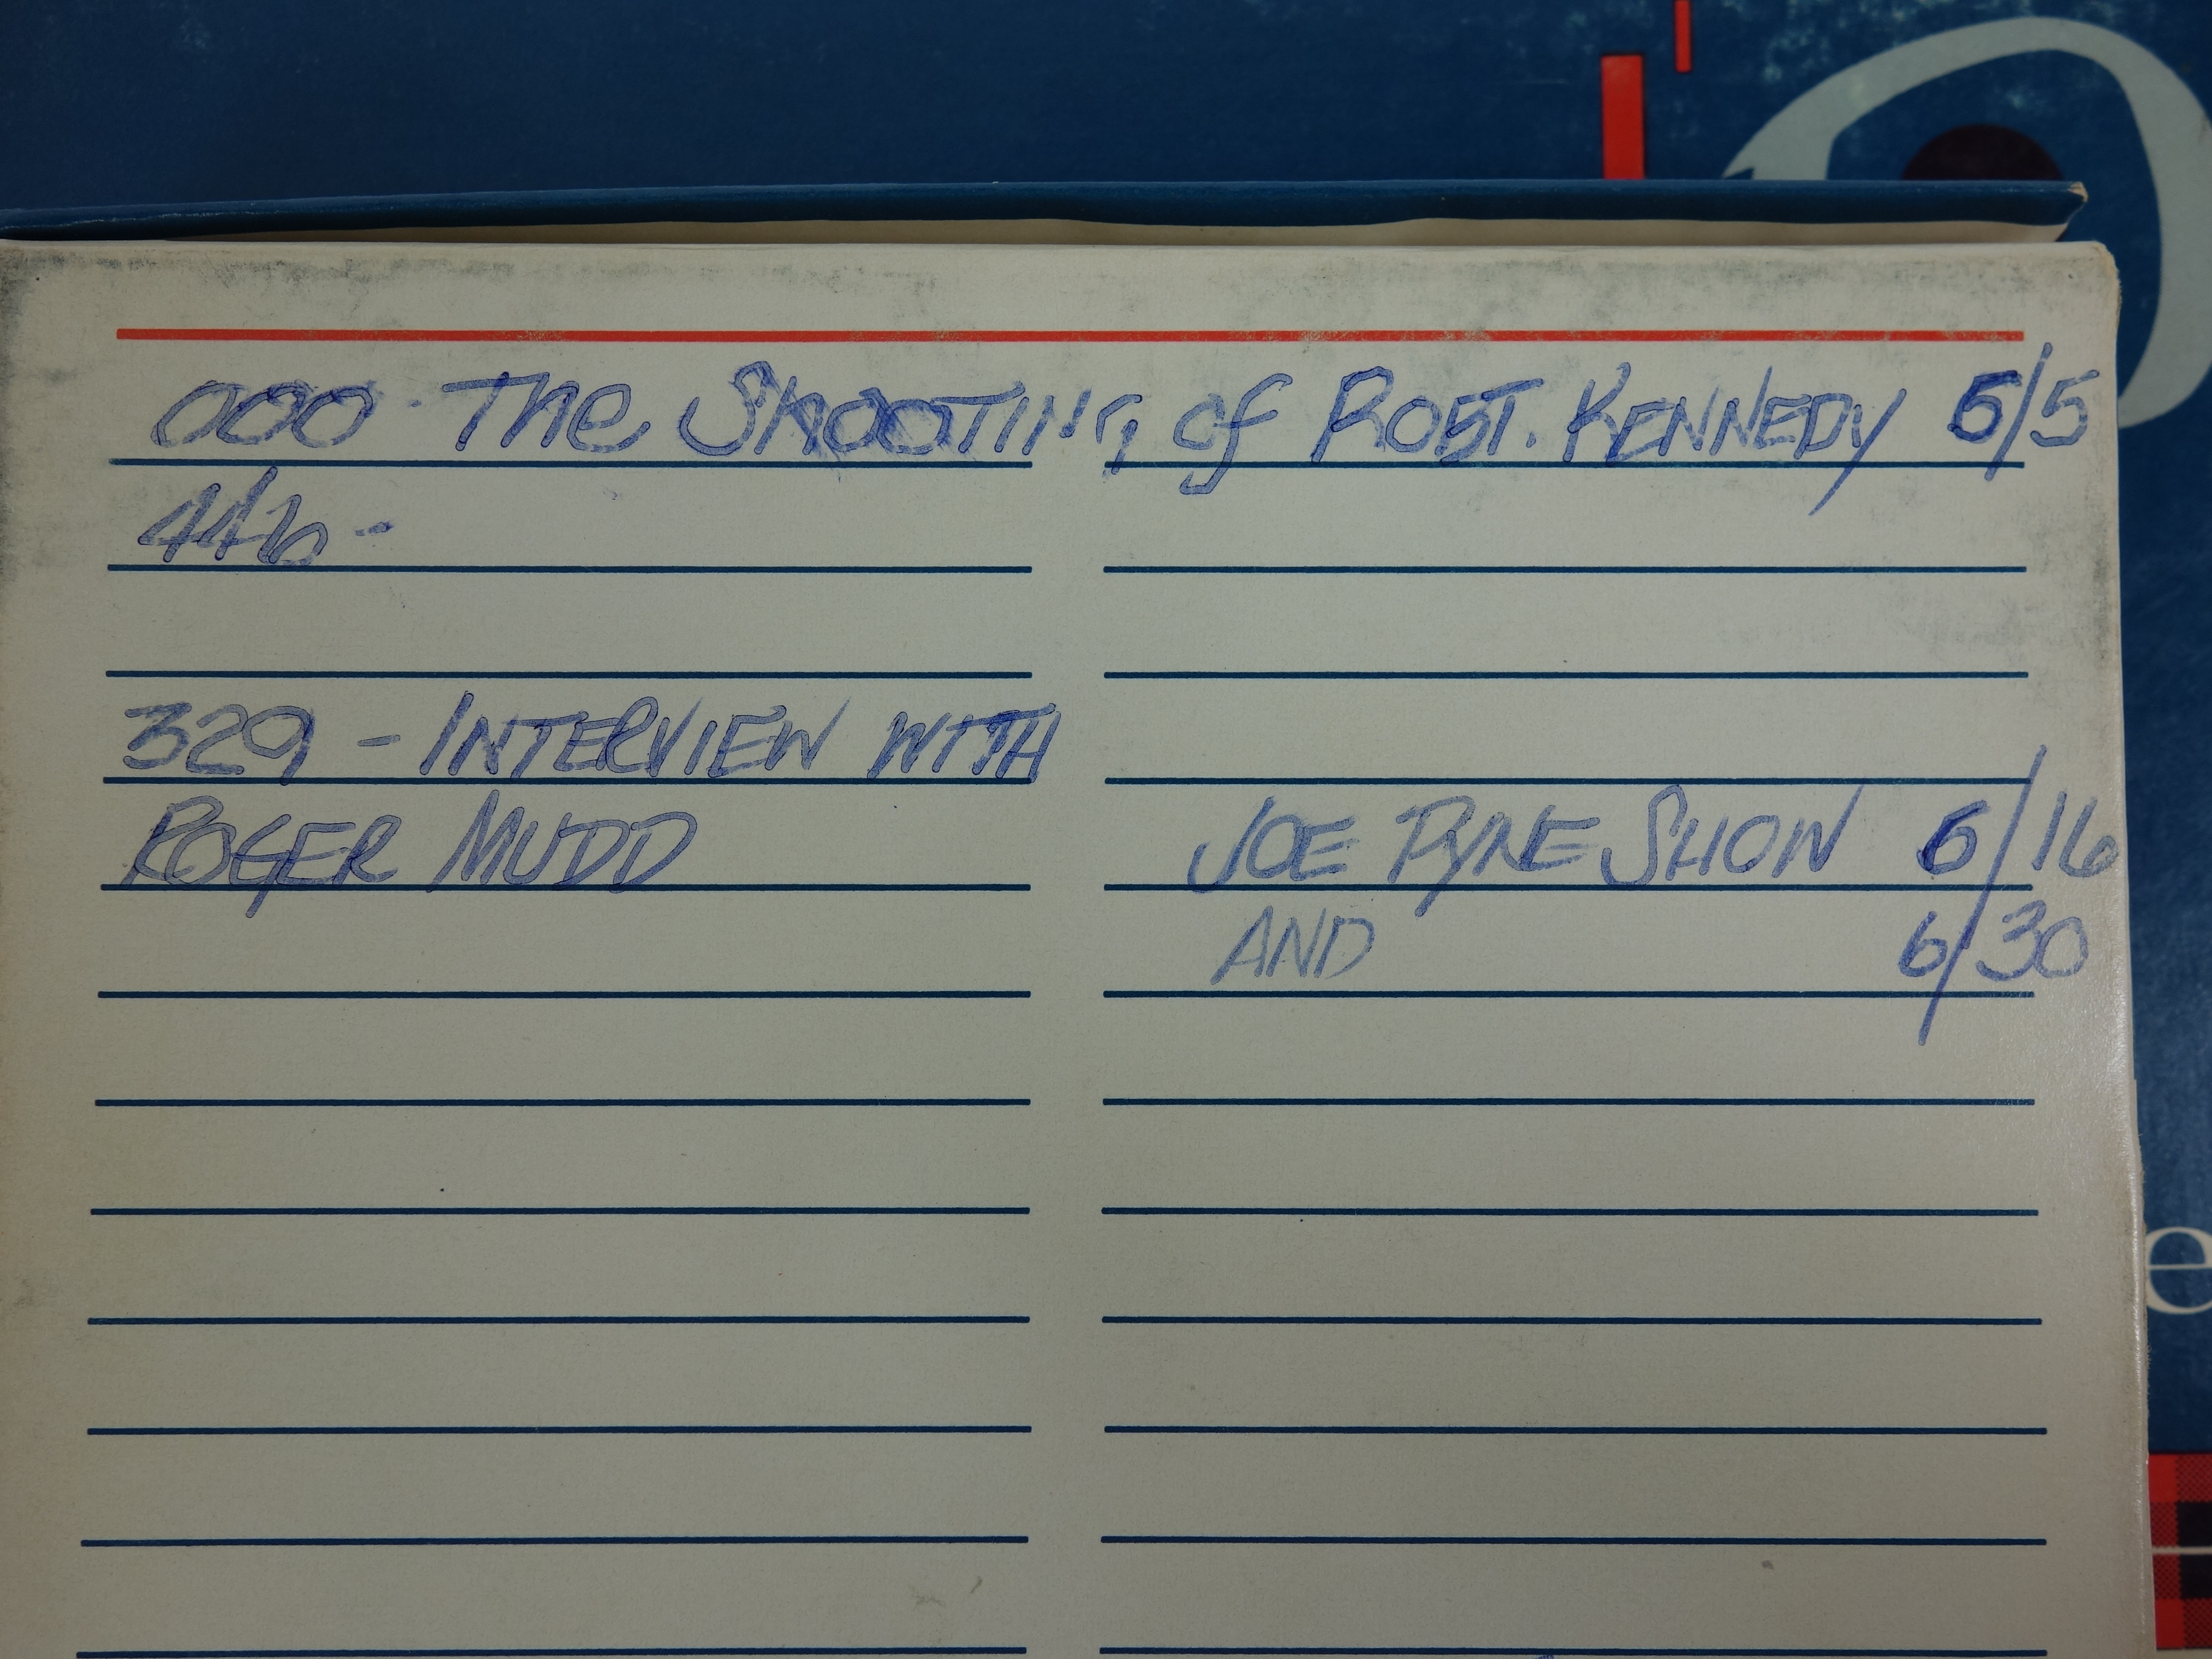 000 - The SHOOTING of ROBT. KENNEDY 6/5
446 -
329 - INTERVIEW WITH
ROGER MUDD
JOE PYNE SHOW 6/16
AND 6/30
e